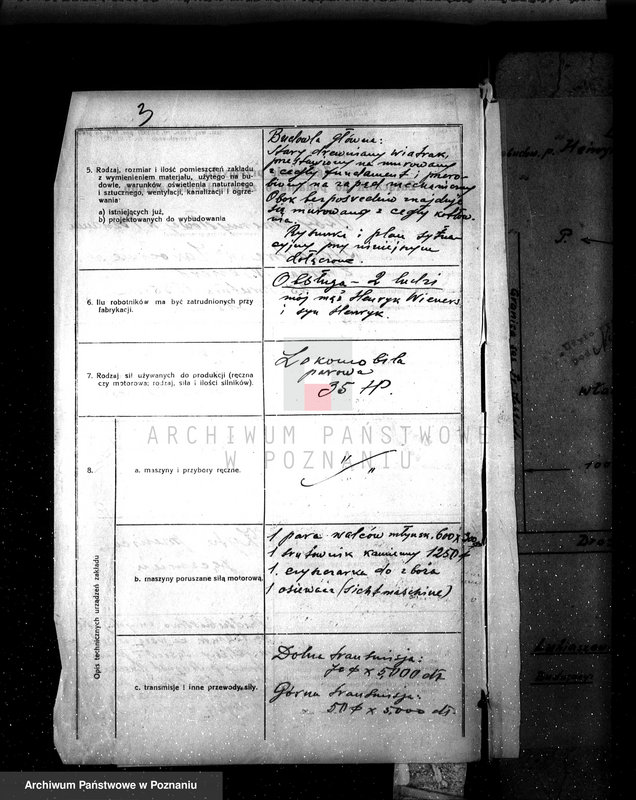 3
5. Rodzaj, rozmiar i ilość pomieszczeń zakładu
z wymienieniem materjału, użytego na bu-
dowle, warunków oświetlenia naturalnego
i sztucznego, wentylacji, kanalizacji i ogrze-
wania:
a) istniejących już,
b) projektowanych do wybudowania
Budowla główna:
Stary drewniany wiatrak,
przestawiony na murowany
z cegły fundament i przero-
biony na zapęd mechaniczny
Obok bezpośrednio znajduje
się murowana z cegły kotłow-
nia.
Rysunki i plan sytua-
cyjny przy niniejszym
dołączone.
6. Ilu robotników ma być zatrudnionych przy
fabrykacji.
Obsługa – 2 ludzi
mój mąż Henryk Wieners
i syn Henryk.
7. Rodzaj sił używanych do produkcji (ręczna
czy motorowa; rodzaj, siła i ilości silników).
Lokomobila
parowa
35 HP.
8.
Opis technicznych urządzeń zakładu
a. maszyny i przybory ręczne.
b. maszyny poruszane siłą motorową.
1 para walców młyńsk. 600 x 300
1 śrutownik kamienny 1250 ϕ
1. czyszczarka do zboża
1 odsiewacz (Sichtmaschine)
c. transmisje i inne przewody siły.
Dolna transmisja:
70 ϕ x 5,000 dł.
Górna transmisja:
50 ϕ x 5,000 dł.
P.
100
ARCHIWUM PAŃSTWOWE
W POZNANIU
Archiwum Państwowe w Poznaniu